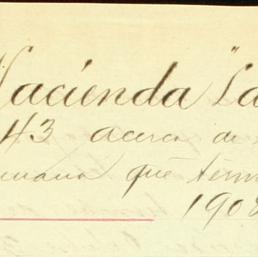 Hacienda "La
43 acerca de
semana que term
1908